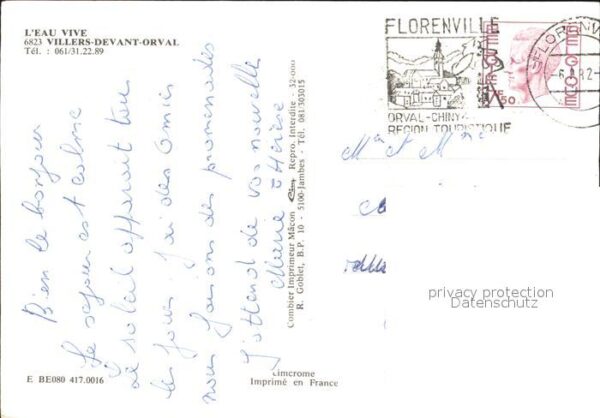 L'EAU VIVE
6823 VILLERS-DEVANT-ORVAL
Tél. : 061/31.22.89
FLORENVILLE
ORVAL-CHINY
REGION TOURISTIQUE
BELGIE BELGIQUE
Bien le bonjour
Le séjour est calme
Le soleil apparaît tous
les jours. J'ai des Amies
nous faisons des promenades
J'attend de vos nouvelle
Marie Thérèse
Combier Imprimeur Mâcon Repro. Interdite - 32-000
R. Goblet, B.P. 10 - 5100-Jambes - Tél. 081.303015
M et Mme
privacy protection
Datenschutz
E BE080 417.0016
Imprimé en France